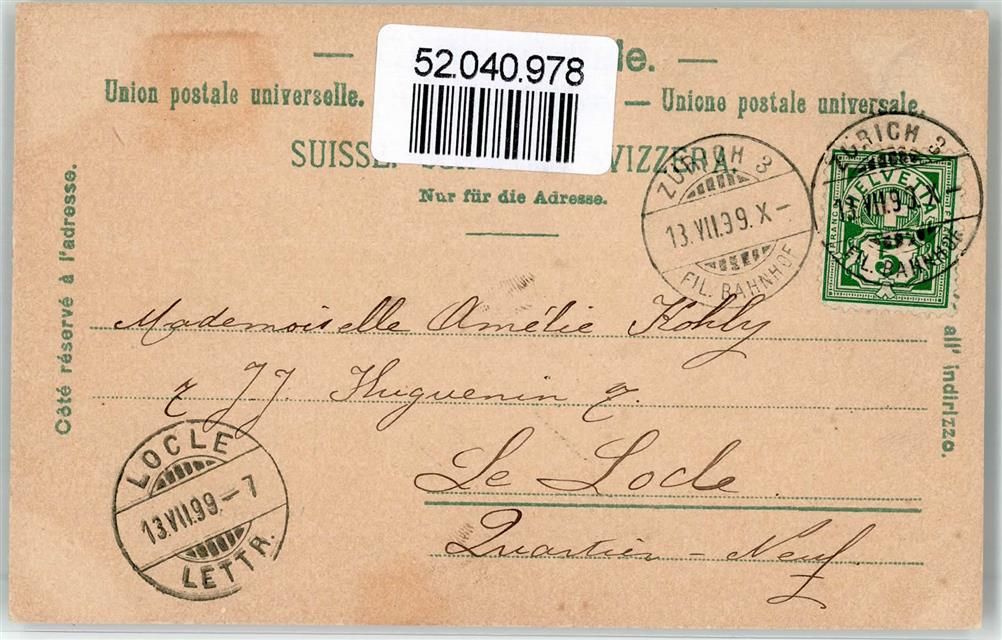 52.040.978
— le. —
Union postale universelle. — Unione postale universale.
SUISSE. VIZZERA.
Nur für die Adresse.
ZÜRICH 3
13.VII.99.X–
FIL. BAHNHOF
ZÜRICH 3
13.VII.99.X–
FIL. BAHNHOF
HELVETIA
FRANCO
5
Côté réservé à l'adresse.
all' indirizzo.
Mademoiselle Amélie Kohly
JJ. Huguenin
Le Locle
Quartier-Neuf
LOCLE
13.VII.99–7
LETTR.